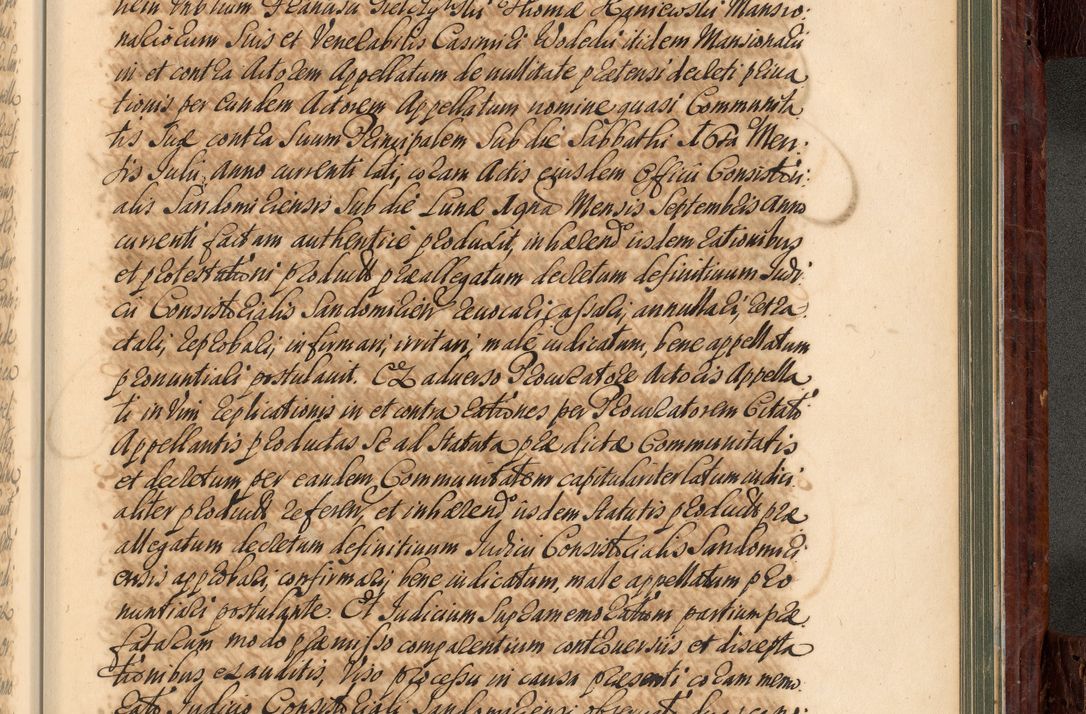 nalium Suis et Venerabilis Casimiri Wodecki itidem Mansionarii
in et contra Actorem Appellatum de nullitate prætensi decreti priva
tionis per eundem Actorem Appellatum nomine quasi Communita
tis suæ contra suum Principalem sub die Sabbathi 16ta Men:
sis Julii, anno currenti lati, coram Actis eiusdem Officii Consistori:
alis Sandomiriensis sub die Lunæ 19na Mensis Septembris anno
currenti factam authenticè produxit, inhærendo iisdem rationibus
et protestationi productis præallegatum decretum definitiuum Judi
cii Consistorialis Sandomirien reuocari, cassari, annullari, retra
ctari, reprobari, infirmari, irritari, malè iudicatum, bene appellatum
pronuntiari postulauit. Ex aduerso Procuratore Actoris Appella
ti in vim replicationis in et contra rationes per Procuratorem Citati
Appellantis productas se ad Statuta prædictæ Communitatis
et decretum per eandem Communitatem capitulariter latum iudici
aliter productis referen, et inhærendo iisdem Statutis productis præ
allegatum decretum definitiuum Judicii Consistorialis Sandomiri
ensis approbari, confirmari, bene iudicatum, male appellatum pro
nuntiari postulante. Et Judicium Supramemoratum partium præ
fatarum modo præmisso comparentium controuersiis et discepta
tionibus exauditis, Viso processu in causa præsenti coram memo
rato Judicio Consistoriali Sandomiriensi